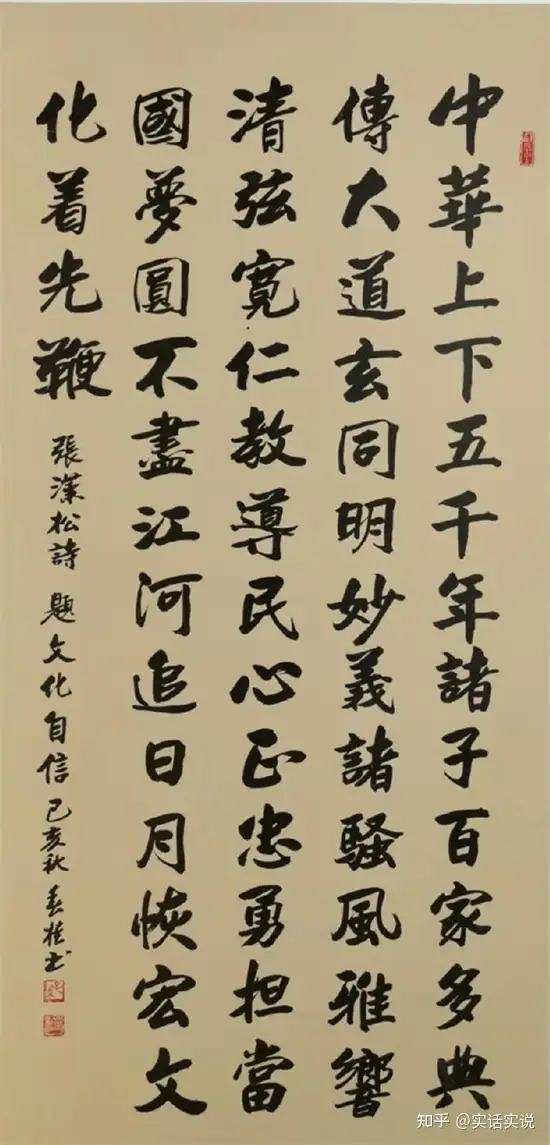 中華上下五千年諸子百家多典
傳大道玄同明妙義諸騷風雅響
清弦寬仁教導民心正忠勇担當
國夢圓不盡江河追日月恢宏文
化着先鞭
張漢松詩 題文化自信 己亥秋 春柱书
知乎 @实话实说